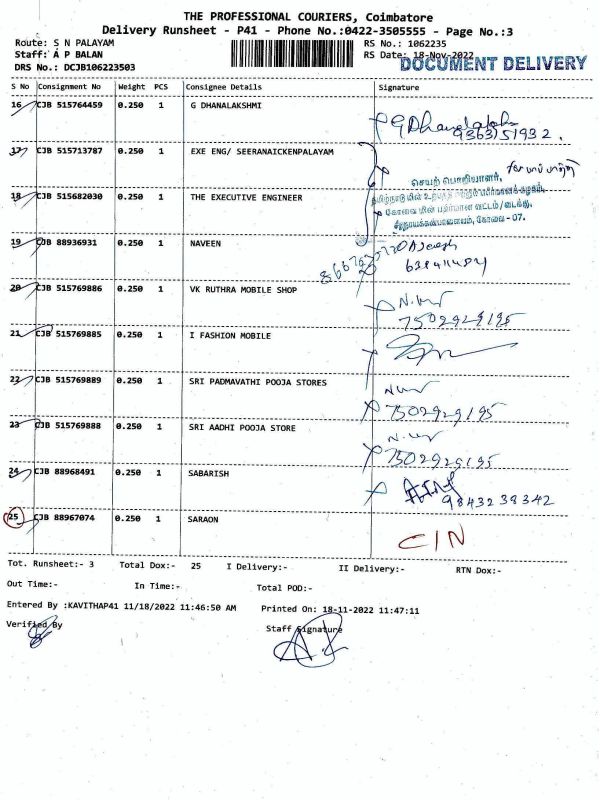 THE PROFESSIONAL COURIERS, Coimbatore
Delivery Runsheet - P41 - Phone No.:0422-3505555 - Page No.:3
Route: S N PALAYAM
RS No.: 1062235
Staff: A P BALAN
RS Date: 18-Nov-2022
DRS No.: DCJB106223503
DOCUMENT DELIVERY
S No Consignment No Weight PCS Consignee Details Signature
16 CJB 515764459 0.250 1 G DHANALAKSHMI
9363151932.
17 CJB 515713787 0.250 1 EXE ENG/ SEERANAICKENPALAYAM
செயற் பொறியாளர்,
18 CJB 515682030 0.250 1 THE EXECUTIVE ENGINEER
சீரநாயக்கன்பாளையம், கோவை - 07.
19 CJB 88936931 0.250 1 NAVEEN
20 CJB 515769886 0.250 1 VK RUTHRA MOBILE SHOP
7502929195
21 CJB 515769885 0.250 1 I FASHION MOBILE
22 CJB 515769889 0.250 1 SRI PADMAVATHI POOJA STORES
7502929195
23 CJB 515769888 0.250 1 SRI AADHI POOJA STORE
7502929195
24 CJB 88968491 0.250 1 SABARISH
9843238342
25 CJB 88967074 0.250 1 SARAON
C/N
Tot. Runsheet:- 3 Total Dox:- 25 I Delivery:- II Delivery:- RTN Dox:-
Out Time:- In Time:- Total POD:-
Entered By :KAVITHAP41 11/18/2022 11:46:50 AM Printed On: 18-11-2022 11:47:11
Verified By Staff Signature